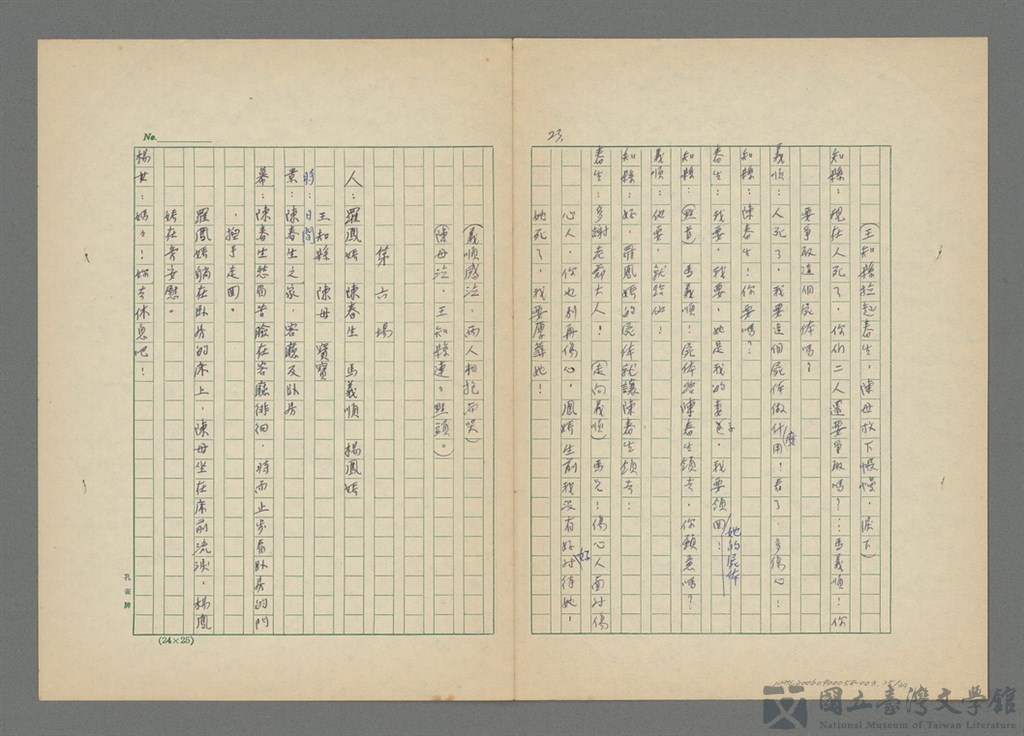 23.
(王知縣拉起春生，陳母放下帳幔，淚下)
知縣：現在人死了，你们二人還要爭取嗎？…馬義順！你
要爭取這個屍体嗎？
義順：人死了，我要這個屍体做什麼用！看了，多傷心！
知縣：陳春生！你要嗎？
春生：我要，我要，她是我的妻子，我要領回她的屍体！
知縣：(點首)馬義順！屍体給陳春生領去，你願意嗎？
義順：他要，就給他！
知縣：好，羅鳳嬌的屍体就讓陳春生領去！
春生：多謝老爺大人！(走向義順)馬兄！傷心人面对傷
心人，你也別再傷心，鳳嬌生前我沒有好好对待她，
她死了，我要厚葬她！
No.
(義順感泣，兩人相抱而哭)
(陳母泣，王知縣連連點頭。)
第六場
人：羅鳳嬌 陳春生 馬義順 楊鳳嬌
王知縣 陳母 寶寶
時：日間
景：陳春生之家，客廳及卧房
幕：陳春生愁眉苦臉在客廳徘徊，時而止步看卧房的門
，搓手走回。
羅鳳嬌躺在卧房的床上，陳母坐在床前流淚，楊鳳
嬌在旁安慰。
楊女：媽媽！妳去休息吧！
孔雀牌
(24×25)
國立臺灣文學館
National Museum of Taiwan Literature